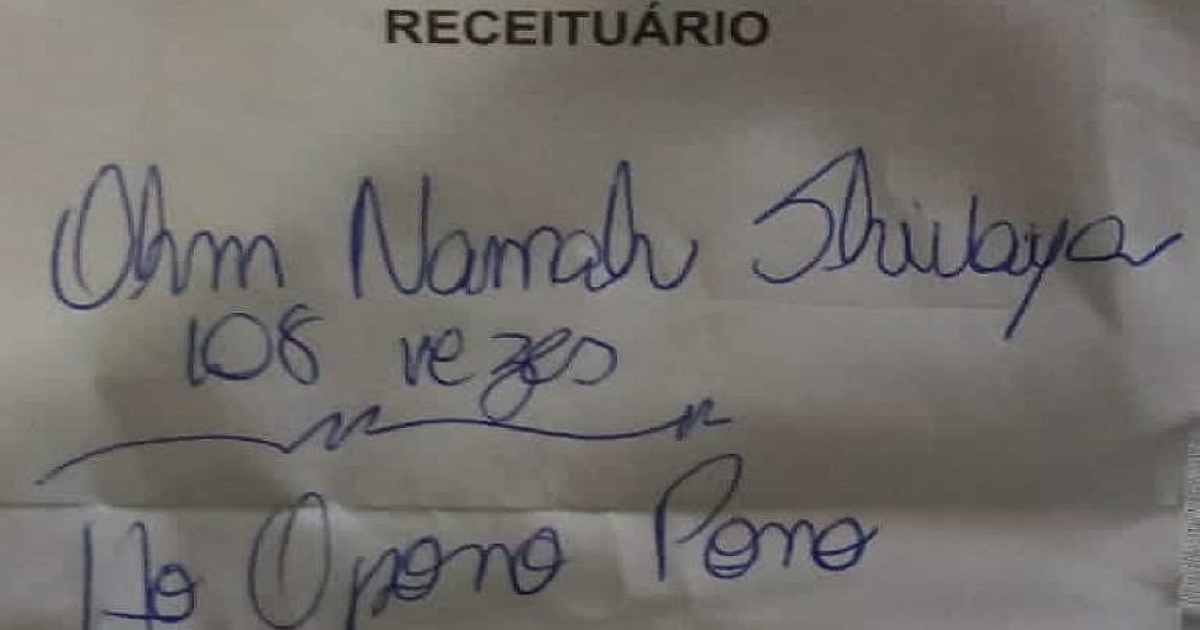 RECEITUÁRIO
Ohm Namah Shivaya
108 vezes
Ho Opono Pono